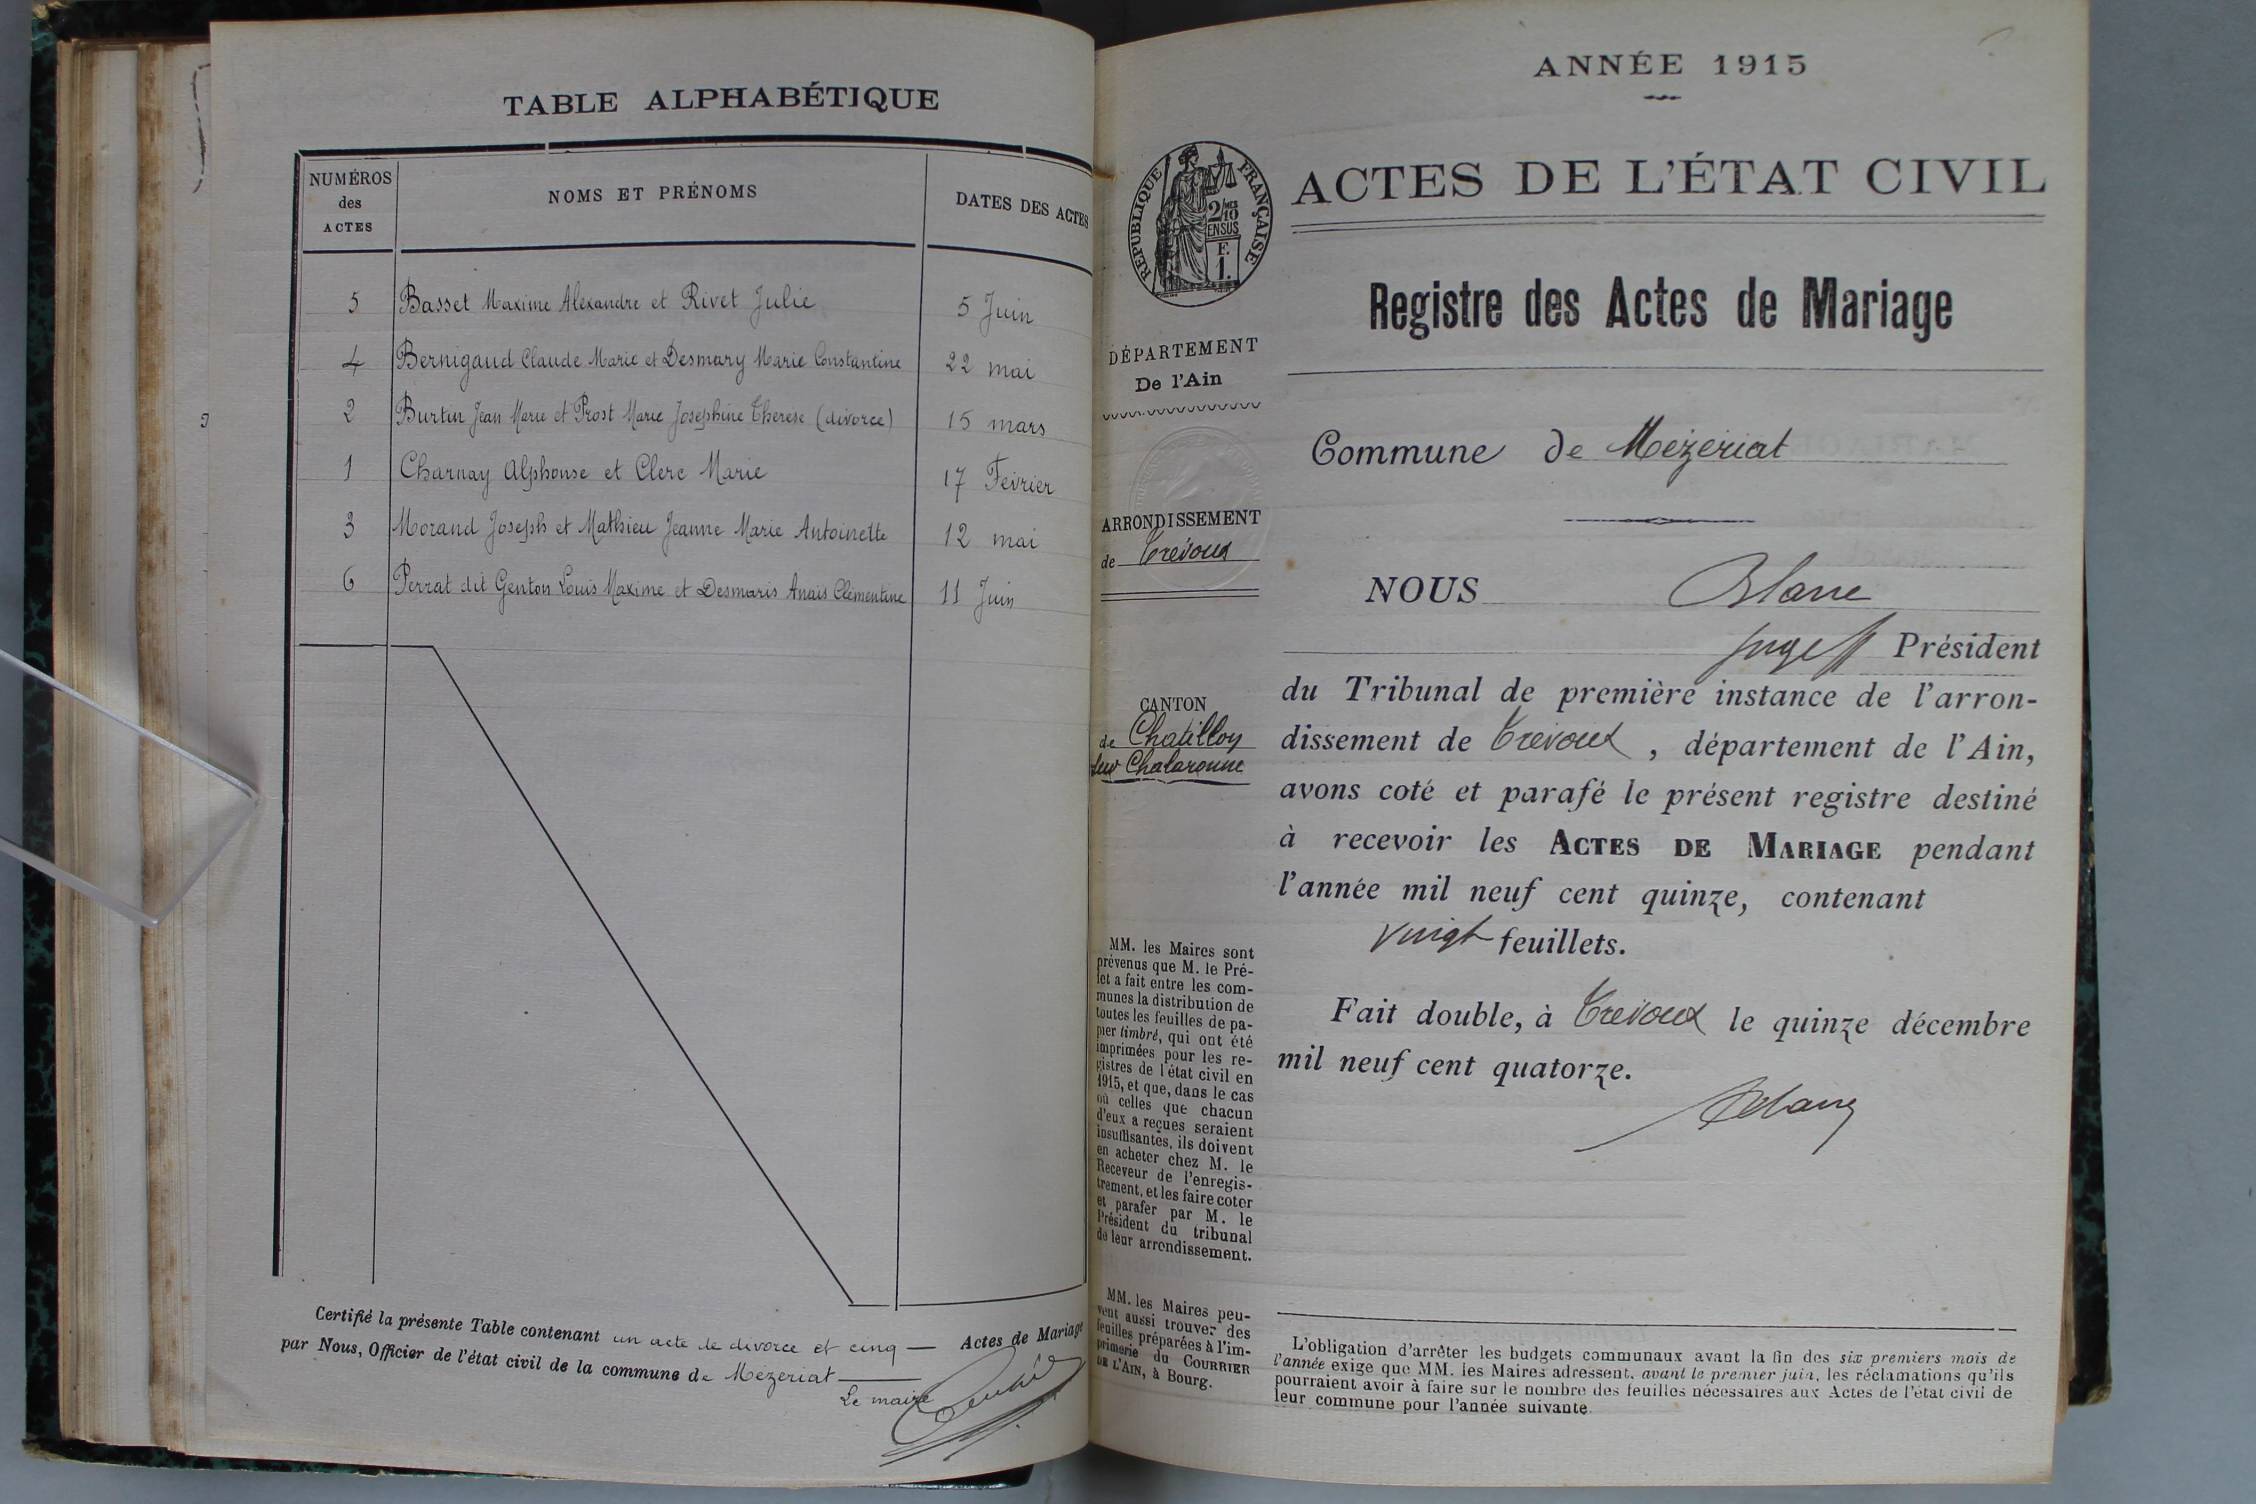 TABLE ALPHABÉTIQUE
NUMÉROS des ACTES NOMS ET PRÉNOMS DATES DES ACTES
5 Basset Maxime Alexandre et Rivet Julie 5 Juin
4 Bernigaud Claude Marie et Desmary Marie Constantine 22 mai
2 Burtin Jean Marie et Prost Marie Josephine Therese (divorce) 15 mars
1 Charnay Alphonse et Clerc Marie 17 Février
3 Morand Joseph et Mathieu Jeanne Marie Antoinette 12 mai
6 Perrat dit Genton Louis Maxime et Desmaris Anais Clémentine 11 Juin
Certifié la présente Table contenant un acte de divorce et cinq — Actes de Mariage
par Nous, Officier de l'état civil de la commune de Mézériat
Le maire
ANNÉE 1915
ACTES DE L'ÉTAT CIVIL
RÉPUBLIQUE FRANÇAISE
2/10
EN SUS
F.
1.
Registre des Actes de Mariage
DÉPARTEMENT
De l'Ain
ARRONDISSEMENT
de Trévoux
CANTON
de Chatillon
sur Chalaronne
MM. les Maires sont
prévenus que M. le Pré-
fet a fait entre les com-
munes la distribution de
toutes les feuilles de pa-
pier timbré, qui ont été
imprimées pour les re-
gistres de l'état civil en
1915, et que, dans le cas
où celles que chacun
d'eux a reçues seraient
insuffisantes, ils doivent
en acheter chez M. le
Receveur de l'enregis-
trement, et les faire coter
et parafer par M. le
Président du tribunal
de leur arrondissement.
MM. les Maires peu-
vent aussi trouver des
feuilles préparées à l'im-
primerie du COURRIER
DE L'AIN, à Bourg.
Commune de Mézériat
NOUS Blanc
Juge ff Président
du Tribunal de première instance de l'arron-
dissement de Trévoux, département de l'Ain,
avons coté et parafé le présent registre destiné
à recevoir les ACTES DE MARIAGE pendant
l'année mil neuf cent quinze, contenant
vingt feuillets.
Fait double, à Trévoux le quinze décembre
mil neuf cent quatorze.
L'obligation d'arrêter les budgets communaux avant la fin des six premiers mois de
l'année exige que MM. les Maires adressent, avant le premier juin, les réclamations qu'ils
pourraient avoir à faire sur le nombre des feuilles nécessaires aux Actes de l'état civil de
leur commune pour l'année suivante.